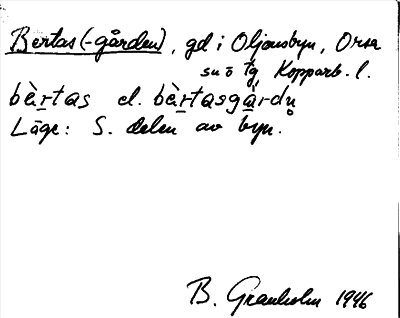 Bertas (-gården), gd i Oljonsbyn, Orsa
sn o tg, Kopparb. l.
bèrtas el. bèrtasgärdn̥
Läge: S. delen av byn.
B. Granholm 1946